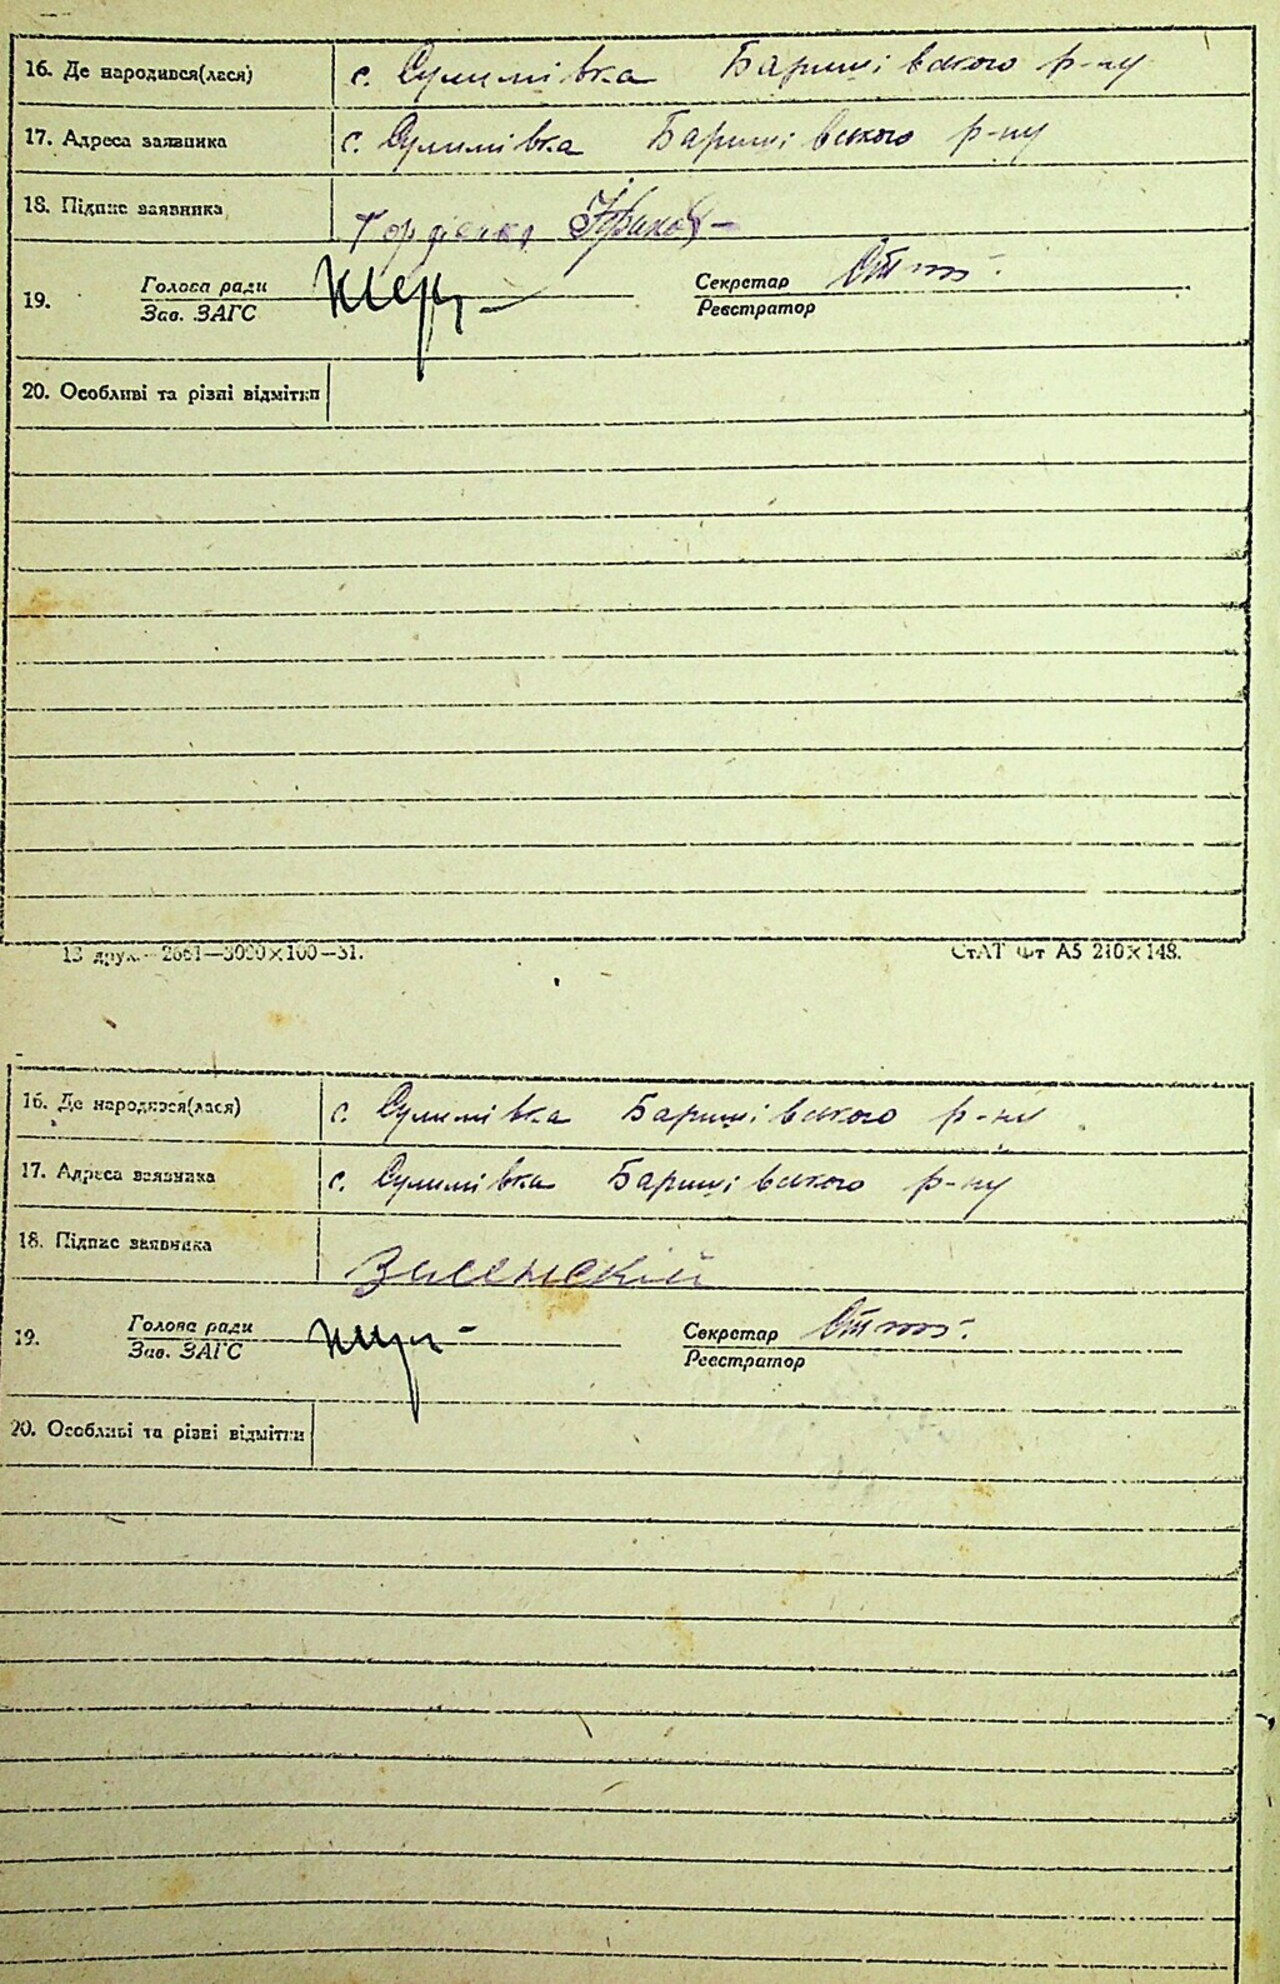 16. Де народився(лася) с. Сулимівка Баришівського р-ну
17. Адреса заявника с. Сулимівка Баришівського р-ну
18. Підпис заявника Гордієнко
19. Голова ради Секретар
Зав. ЗАГС Реєстратор
20. Особливі та різні відмітки
13 друк. 2661—3000×100—31. СтАТ Фт А5 210×148.
16. Де народився(лася) с. Сулимівка Баришівського р-ну
17. Адреса заявника с. Сулимівка Баришівського р-ну
18. Підпис заявника Зиленский
19. Голова ради Секретар
Зав. ЗАГС Реєстратор
20. Особливі та різні відмітки